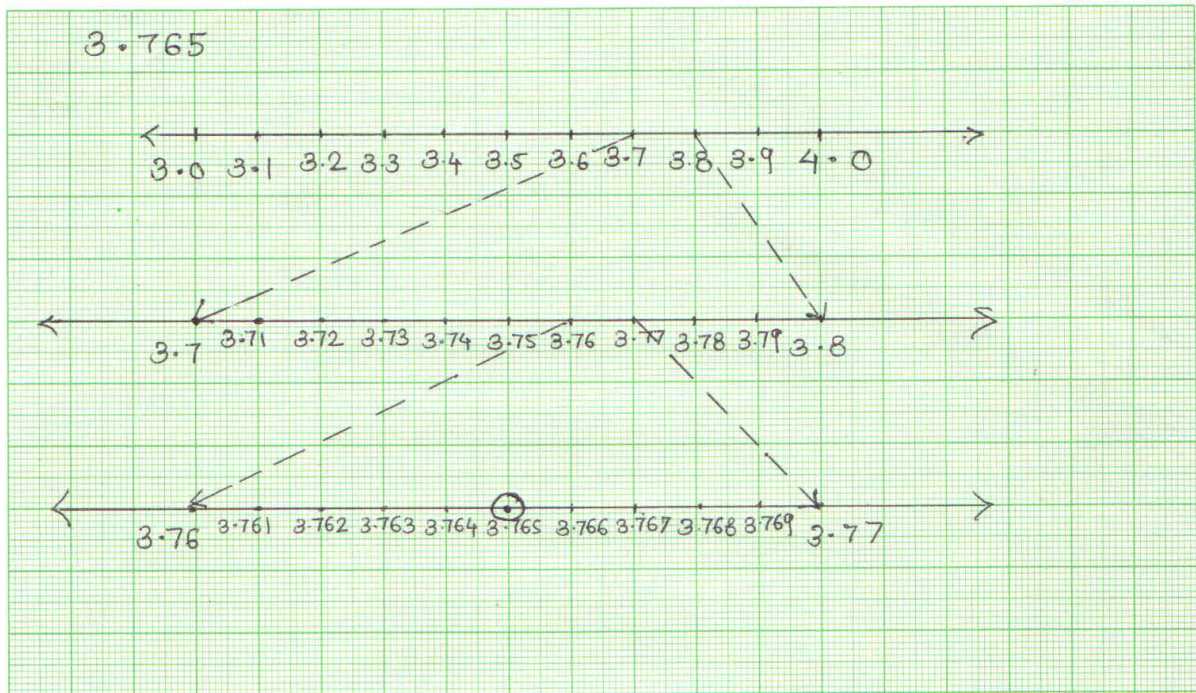 3.765
3.0 3.1 3.2 3.3 3.4 3.5 3.6 3.7 3.8 3.9 4.0
3.7 3.71 3.72 3.73 3.74 3.75 3.76 3.77 3.78 3.79 3.8
3.76 3.761 3.762 3.763 3.764 3.765 3.766 3.767 3.768 3.769 3.77